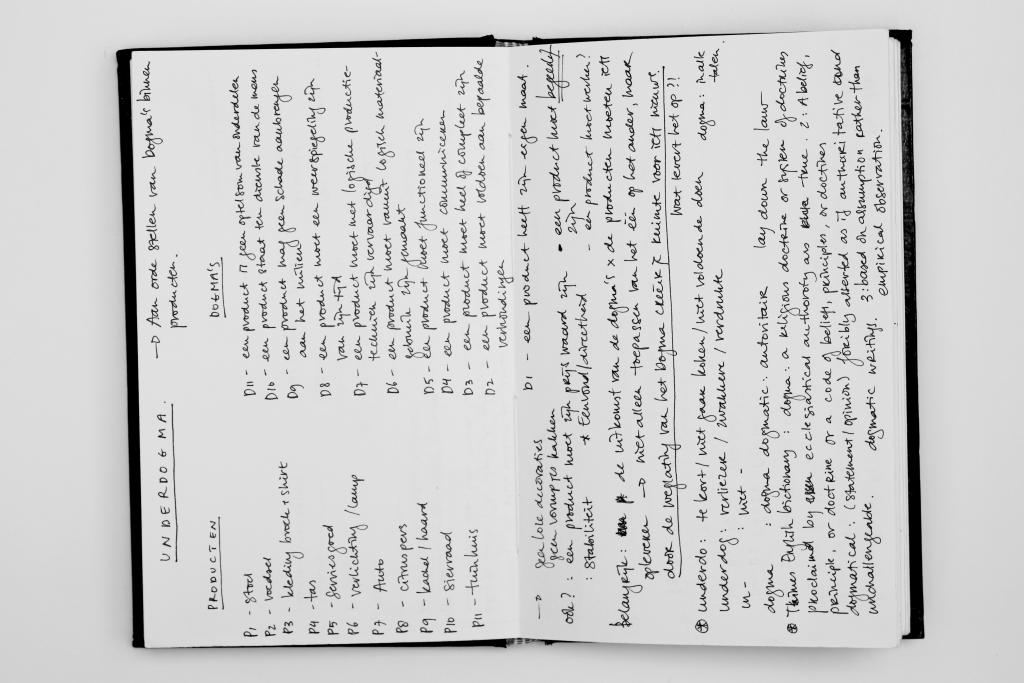 UNDERDOGMA.
—D Aan orde stellen van dogma's binnen
producten.
PRODUCTEN
P1 - stoel
P2 - voedsel
P3 - kleding broek + shirt
P4 - tas
P5 - serviesgoed
P6 - verlichting / lamp
P7 - Auto
P8 - citruspers
P9 - kachel / haard
P10 - sieraad
P11 - tuinhuis
DOGMA'S
D11 - een product is geen optelsom van onderdelen
D10 - een product staat ten dienste van de mens
D9 - een product mag geen schade aanbrengen
aan het milieu
D8 - een product moet een weerspiegeling zijn
van zijn tijd
D7 - een product moet met logische productie-
technieken zijn vervaardigd
D6 - een product moet vanuit logisch materiaal-
gebruik zijn gemaakt
D5 - een product moet functioneel zijn
D4 - een product moet communiceren
D3 - een product moet heel of compleet zijn
D2 - een product moet voldoen aan bepaalde
verhoudingen
D1 - een product heeft zijn eigen maat.
—D geen lolle decoraties
geen vormpjes kakken
ook? : een product moet zijn prijs waard zijn - een product moet begeerlijk
zijn
: stabiliteit * Eenvoud / directheid - een product moet werken?
belangrijk: de uitkomst van de dogma's x de producten moeten iets
opleveren —D niet alleen toepassen van het één op het ander, maar
door de weglating van het dogma creëer je ruimte voor iets nieuws
Wat levert het op?!
underdo: te kort / niet gaar koken / niet voldoende doen dogma: in alle
talen.
underdog: verliezer / zwakkere / verdrukte
un- : niet -
dogma : dogma dogmatic: autoritair lay down the law
Times English Dictionary : dogma: a religious doctrine or system of doctrines
proclaimed by ecclesiastical authority as true. 2: A belief,
principle, or doctrine or a code of beliefs, principles, or doctrines
dogmatical: (statement / opinion) forcibly asserted as if authoritative and
unchallengeable. dogmatic writings. 3: based on assumption rather than
empirical observation.